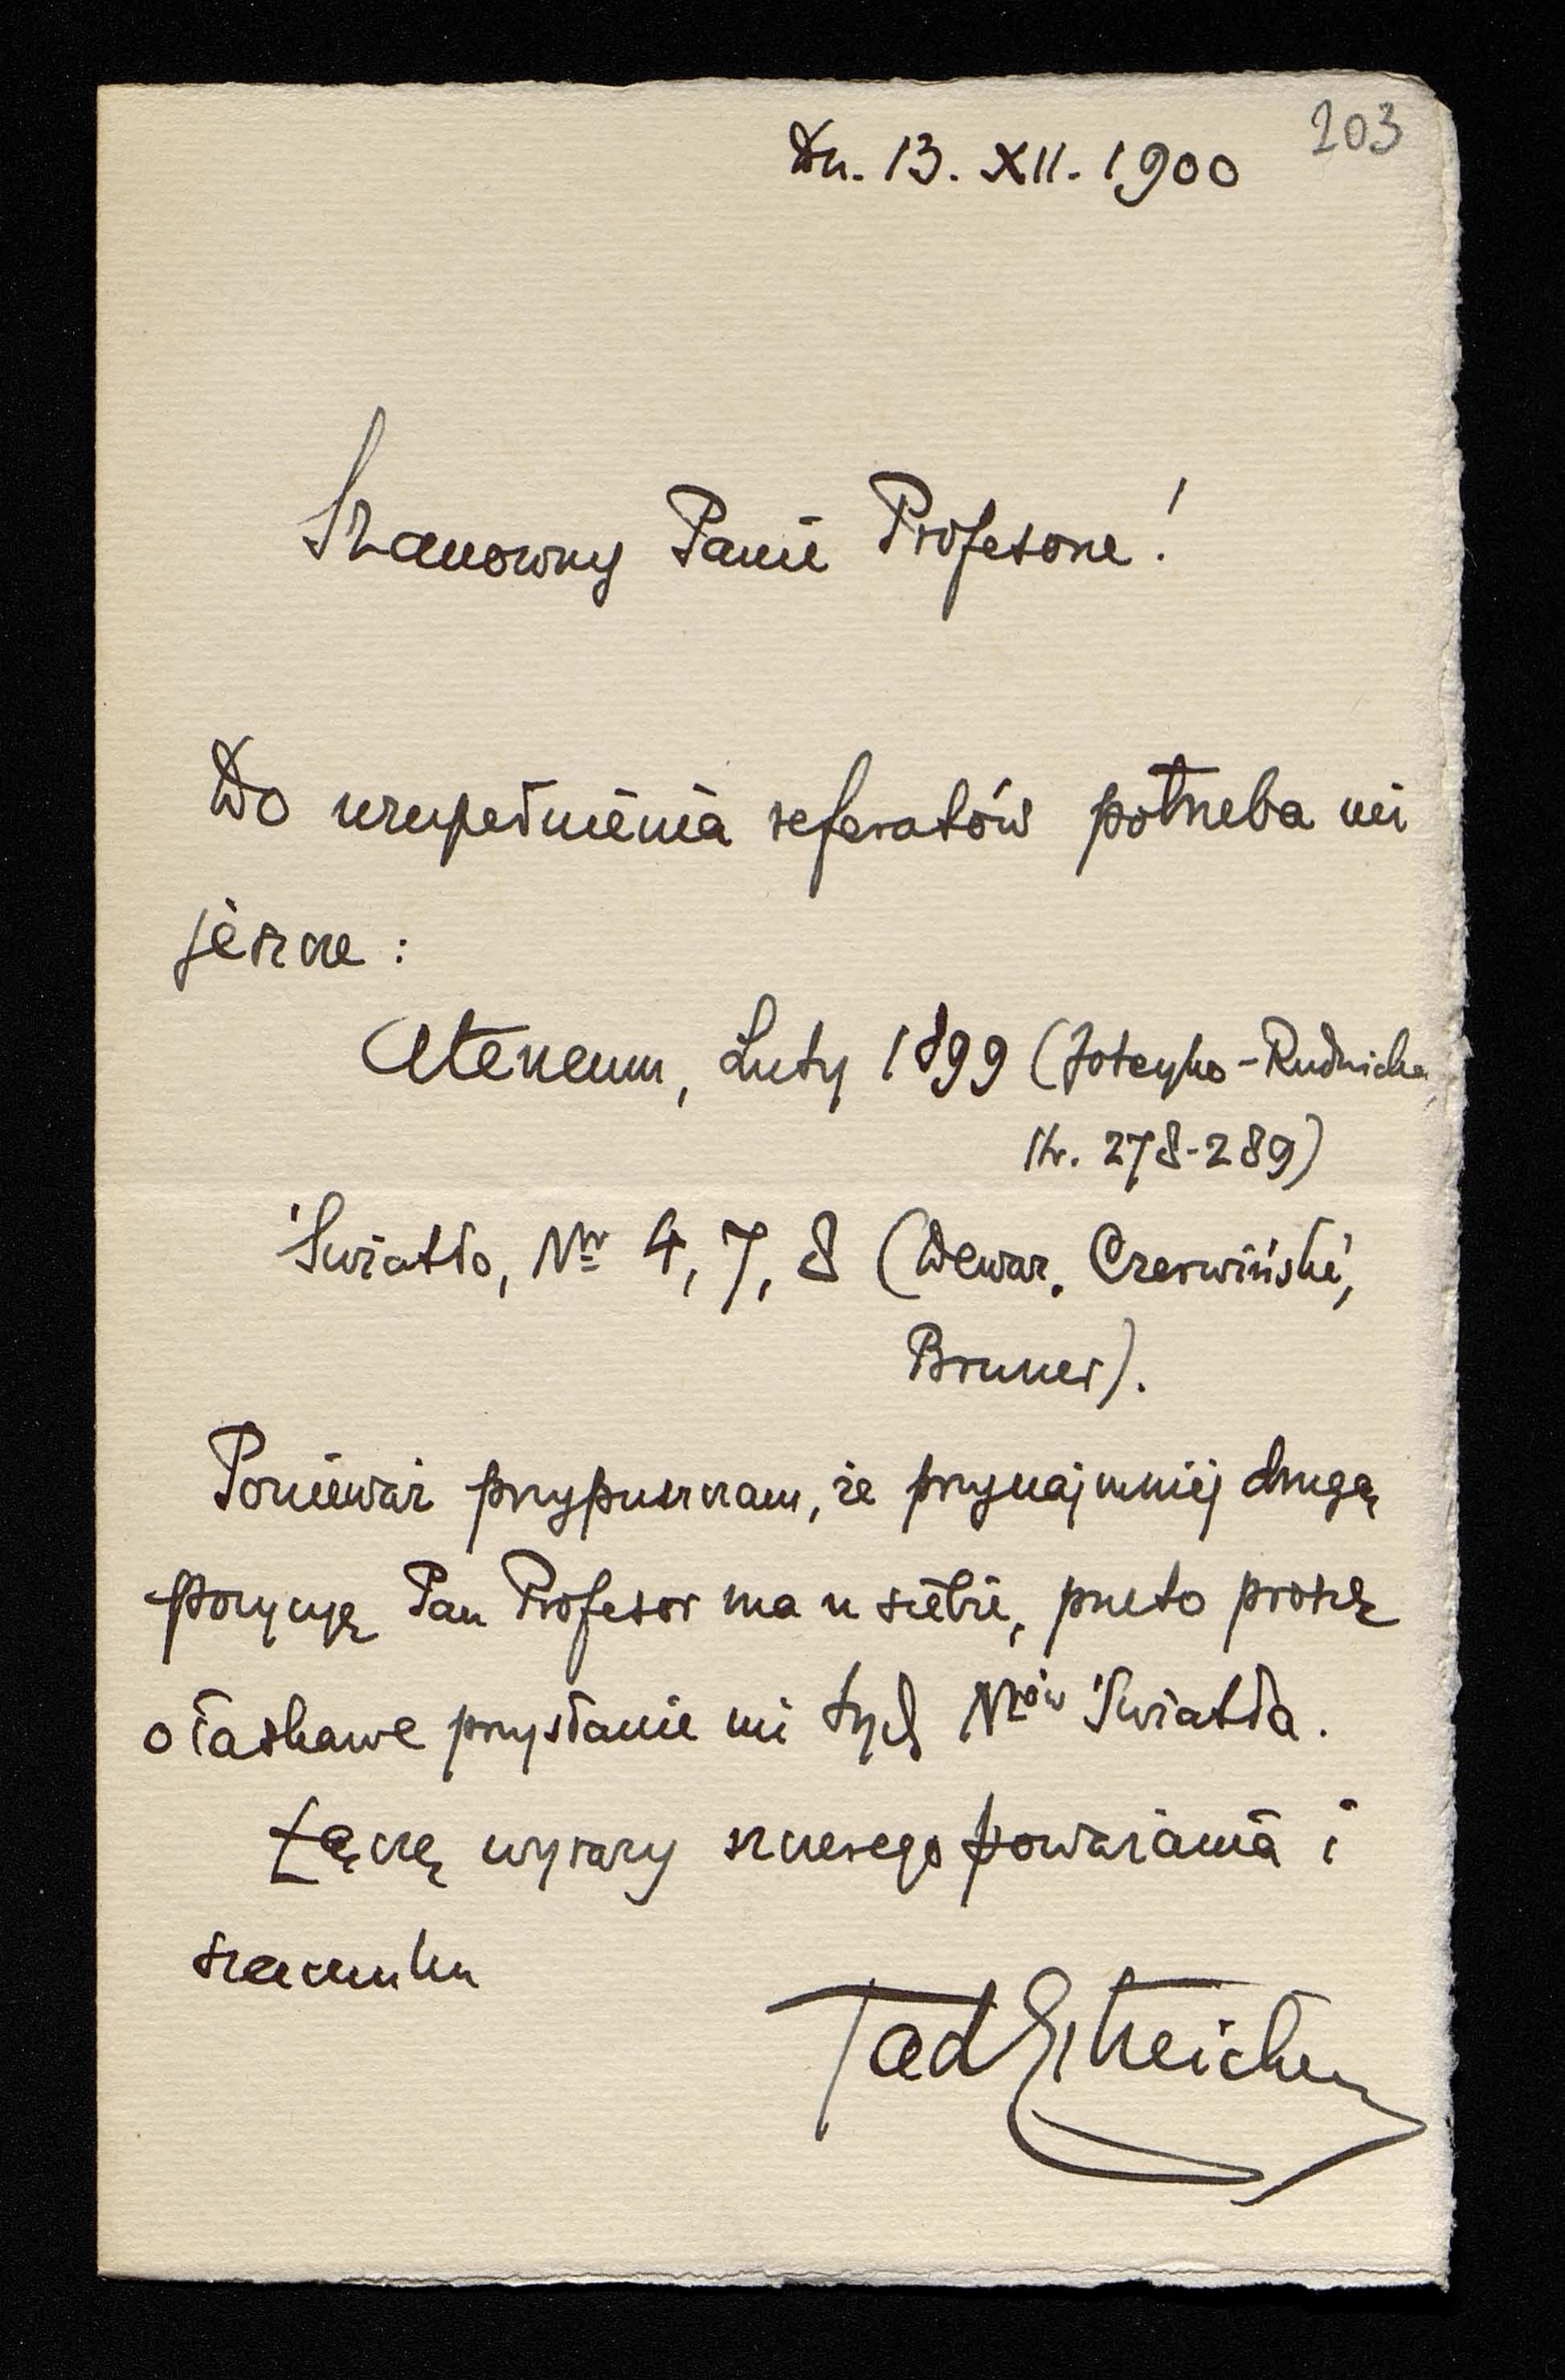 203
Dn. 13. XII. 1900
Szanowny Panie Profesorze!
Do uzupełnienia referatów potrzeba mi
jeszcze:
Ateneum, Luty 1899 (Joteyko-Rudnicka,
str. 278-289)
Światło, Nr 4, 7, 8 (Dewar, Czerwiński,
Bruner).
Ponieważ przypuszczam, że przynajmniej drugą
pozycyę Pan Profesor ma u siebie, przeto proszę
o łaskawe przysłanie mi tych Nrów Światła.
Łączę wyrazy szczerego poważania i
szacunku
TadEstreicher